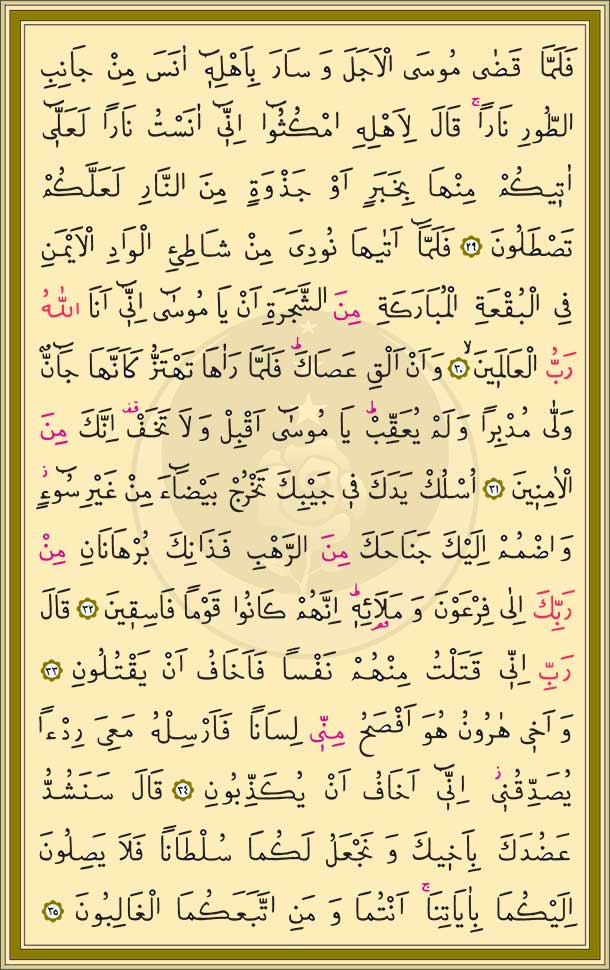 فَلَمَّا قَضٰى مُوسَى الْاَجَلَ وَ سَارَ بِاَهْلِهٖٓ اٰنَسَ مِنْ جَانِبِ
الطُّورِ نَارًاۚ قَالَ لِاَهْلِهِ امْكُثُٓوا اِنّٖٓي اٰنَسْتُ نَارًا لَعَلّٖٓي
اٰتٖيكُمْ مِنْهَا بِخَبَرٍ اَوْ جَذْوَةٍ مِنَ النَّارِ لَعَلَّكُمْ
تَصْطَلُونَ ﴿٢٩﴾ فَلَمَّٓا اَتٰيهَا نُودِيَ مِنْ شَاطِئِ الْوَادِ الْاَيْمَنِ
فِي الْبُقْعَةِ الْمُبَارَكَةِ مِنَ الشَّجَرَةِ اَنْ يَا مُوسٰٓى اِنّٖٓي اَنَا اللّٰهُ
رَبُّ الْعَالَمٖينَۙ ﴿٣٠﴾ وَ اَنْ اَلْقِ عَصَاكَۜ فَلَمَّا رَاٰهَا تَهْتَزُّ كَاَنَّهَا جَٓانٌّ
وَلّٰى مُدْبِرًا وَ لَمْ يُعَقِّبْۜ يَا مُوسٰٓى اَقْبِلْ وَ لَا تَخَفْ۠ اِنَّكَ مِنَ
الْاٰمِنٖينَ ﴿٣١﴾ اُسْلُكْ يَدَكَ فٖي جَيْبِكَ تَخْرُجْ بَيْضَٓاءَ مِنْ غَيْرِ سُٓوءٍۘ
وَ اضْمُمْ اِلَيْكَ جَنَاحَكَ مِنَ الرَّهْبِ فَذَانِكَ بُرْهَانَانِ مِنْ
رَبِّكَ اِلٰى فِرْعَوْنَ وَ مَلَائِهٖۜ اِنَّهُمْ كَانُوا قَوْمًا فَاسِقٖينَ ﴿٣٢﴾ قَالَ
رَبِّ اِنّٖي قَتَلْتُ مِنْهُمْ نَفْسًا فَاَخَافُ اَنْ يَقْتُلُونِ ﴿٣٣﴾
وَ اَخٖي هٰرُونُ هُوَ اَفْصَحُ مِنّٖي لِسَانًا فَاَرْسِلْهُ مَعِيَ رِدْءًا
يُصَدِّقُنٖيۘ اِنّٖٓي اَخَافُ اَنْ يُكَذِّبُونِ ﴿٣٤﴾ قَالَ سَنَشُدُّ
عَضُدَكَ بِاَخٖيكَ وَ نَجْعَلُ لَكُمَا سُلْطَانًا فَلَا يَصِلُونَ
اِلَيْكُمَا بِاٰيَاتِنَاۚ اَنْتُمَا وَ مَنِ اتَّبَعَكُمَا الْغَالِبُونَ ﴿٣٥﴾